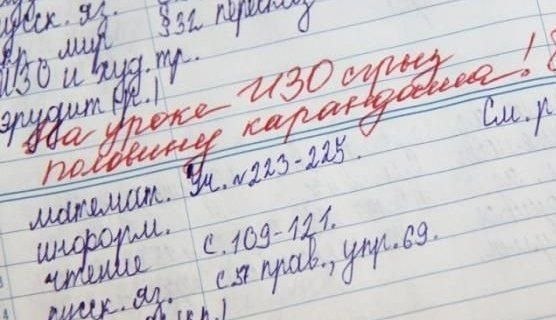 русск. яз. §32 пересказ
окр. мир
ИЗО и худ. тр.
эрудит (к.)
На уроке ИЗО сгрыз
половину карандаша!
См. р
математ. Уч. №223-225.
информ.
чтение с. 109-121.
русск. яз. с. 37 прав., упр. 69.